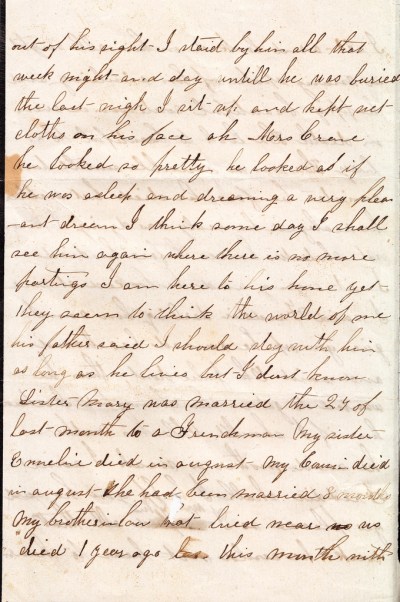 out of his sight I staid by him all that
week night and day untill he was buried
the last nigh I sit up and kept wet
cloths on his face oh Mrs Crane
he looked so pretty he looked as if
he was asleep and dreaming a very pleas
-ant dream I think some day I shall
see him again where there is no more
partings I am here to his home yet
they seem to think the world of me
his father said I should stay with him
as long as he lives but I dont know
Sister Mary was married the 24 of
last month to a Frenchman My sister
Emeline died in august My Cousin died
in august she had been married 8 months
My brother in law that lived near us
died 1 year ago this month with